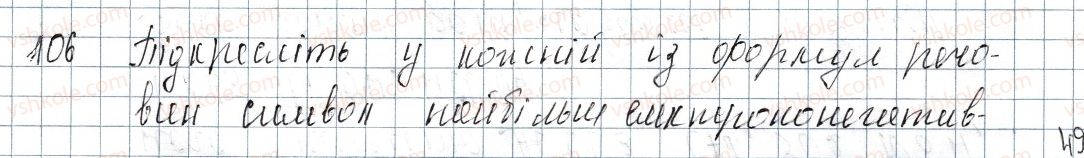 106 Підкресліть у кожній із формул речо-
вин символ найбільш електрононегатив-
49